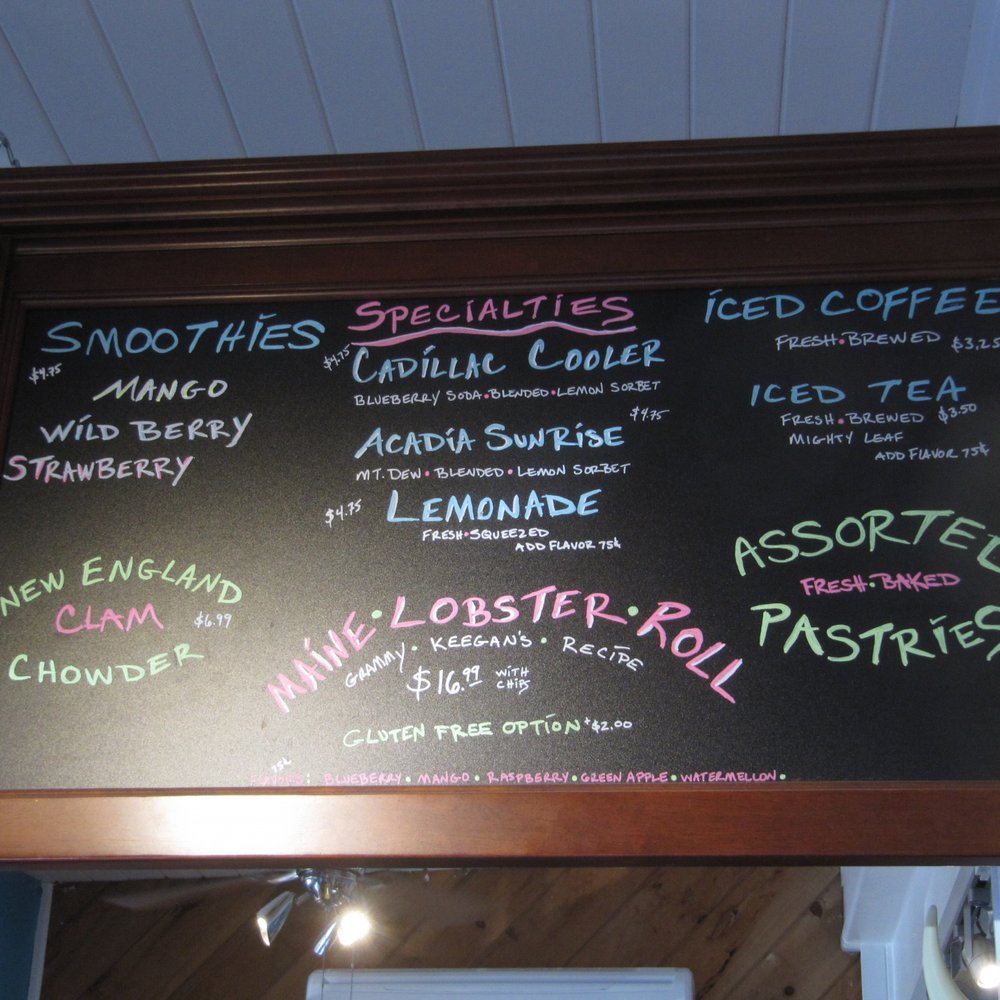 SMOOTHIES
$4.75
MANGO
WILD BERRY
STRAWBERRY
NEW ENGLAND
CLAM $6.99
CHOWDER
SPECIALTIES
$4.75
CADILLAC COOLER
BLUEBERRY SODA • BLENDED • LEMON SORBET
$4.75
ACADIA SUNRISE
MT. DEW • BLENDED • LEMON SORBET
$4.75 LEMONADE
FRESH • SQUEEZED
ADD FLAVOR 75¢
MAINE • LOBSTER • ROLL
GRAMMY • KEEGAN'S • RECIPE
$16.99 WITH CHIPS
GLUTEN FREE OPTION +$2.00
75¢
FLAVORS: BLUEBERRY • MANGO • RASPBERRY • GREEN APPLE • WATERMELLON •
ICED COFFEE
FRESH • BREWED $3.25
ICED TEA
FRESH • BREWED $3.50
MIGHTY LEAF
ADD FLAVOR 75¢
ASSORTED
FRESH • BAKED
PASTRIES